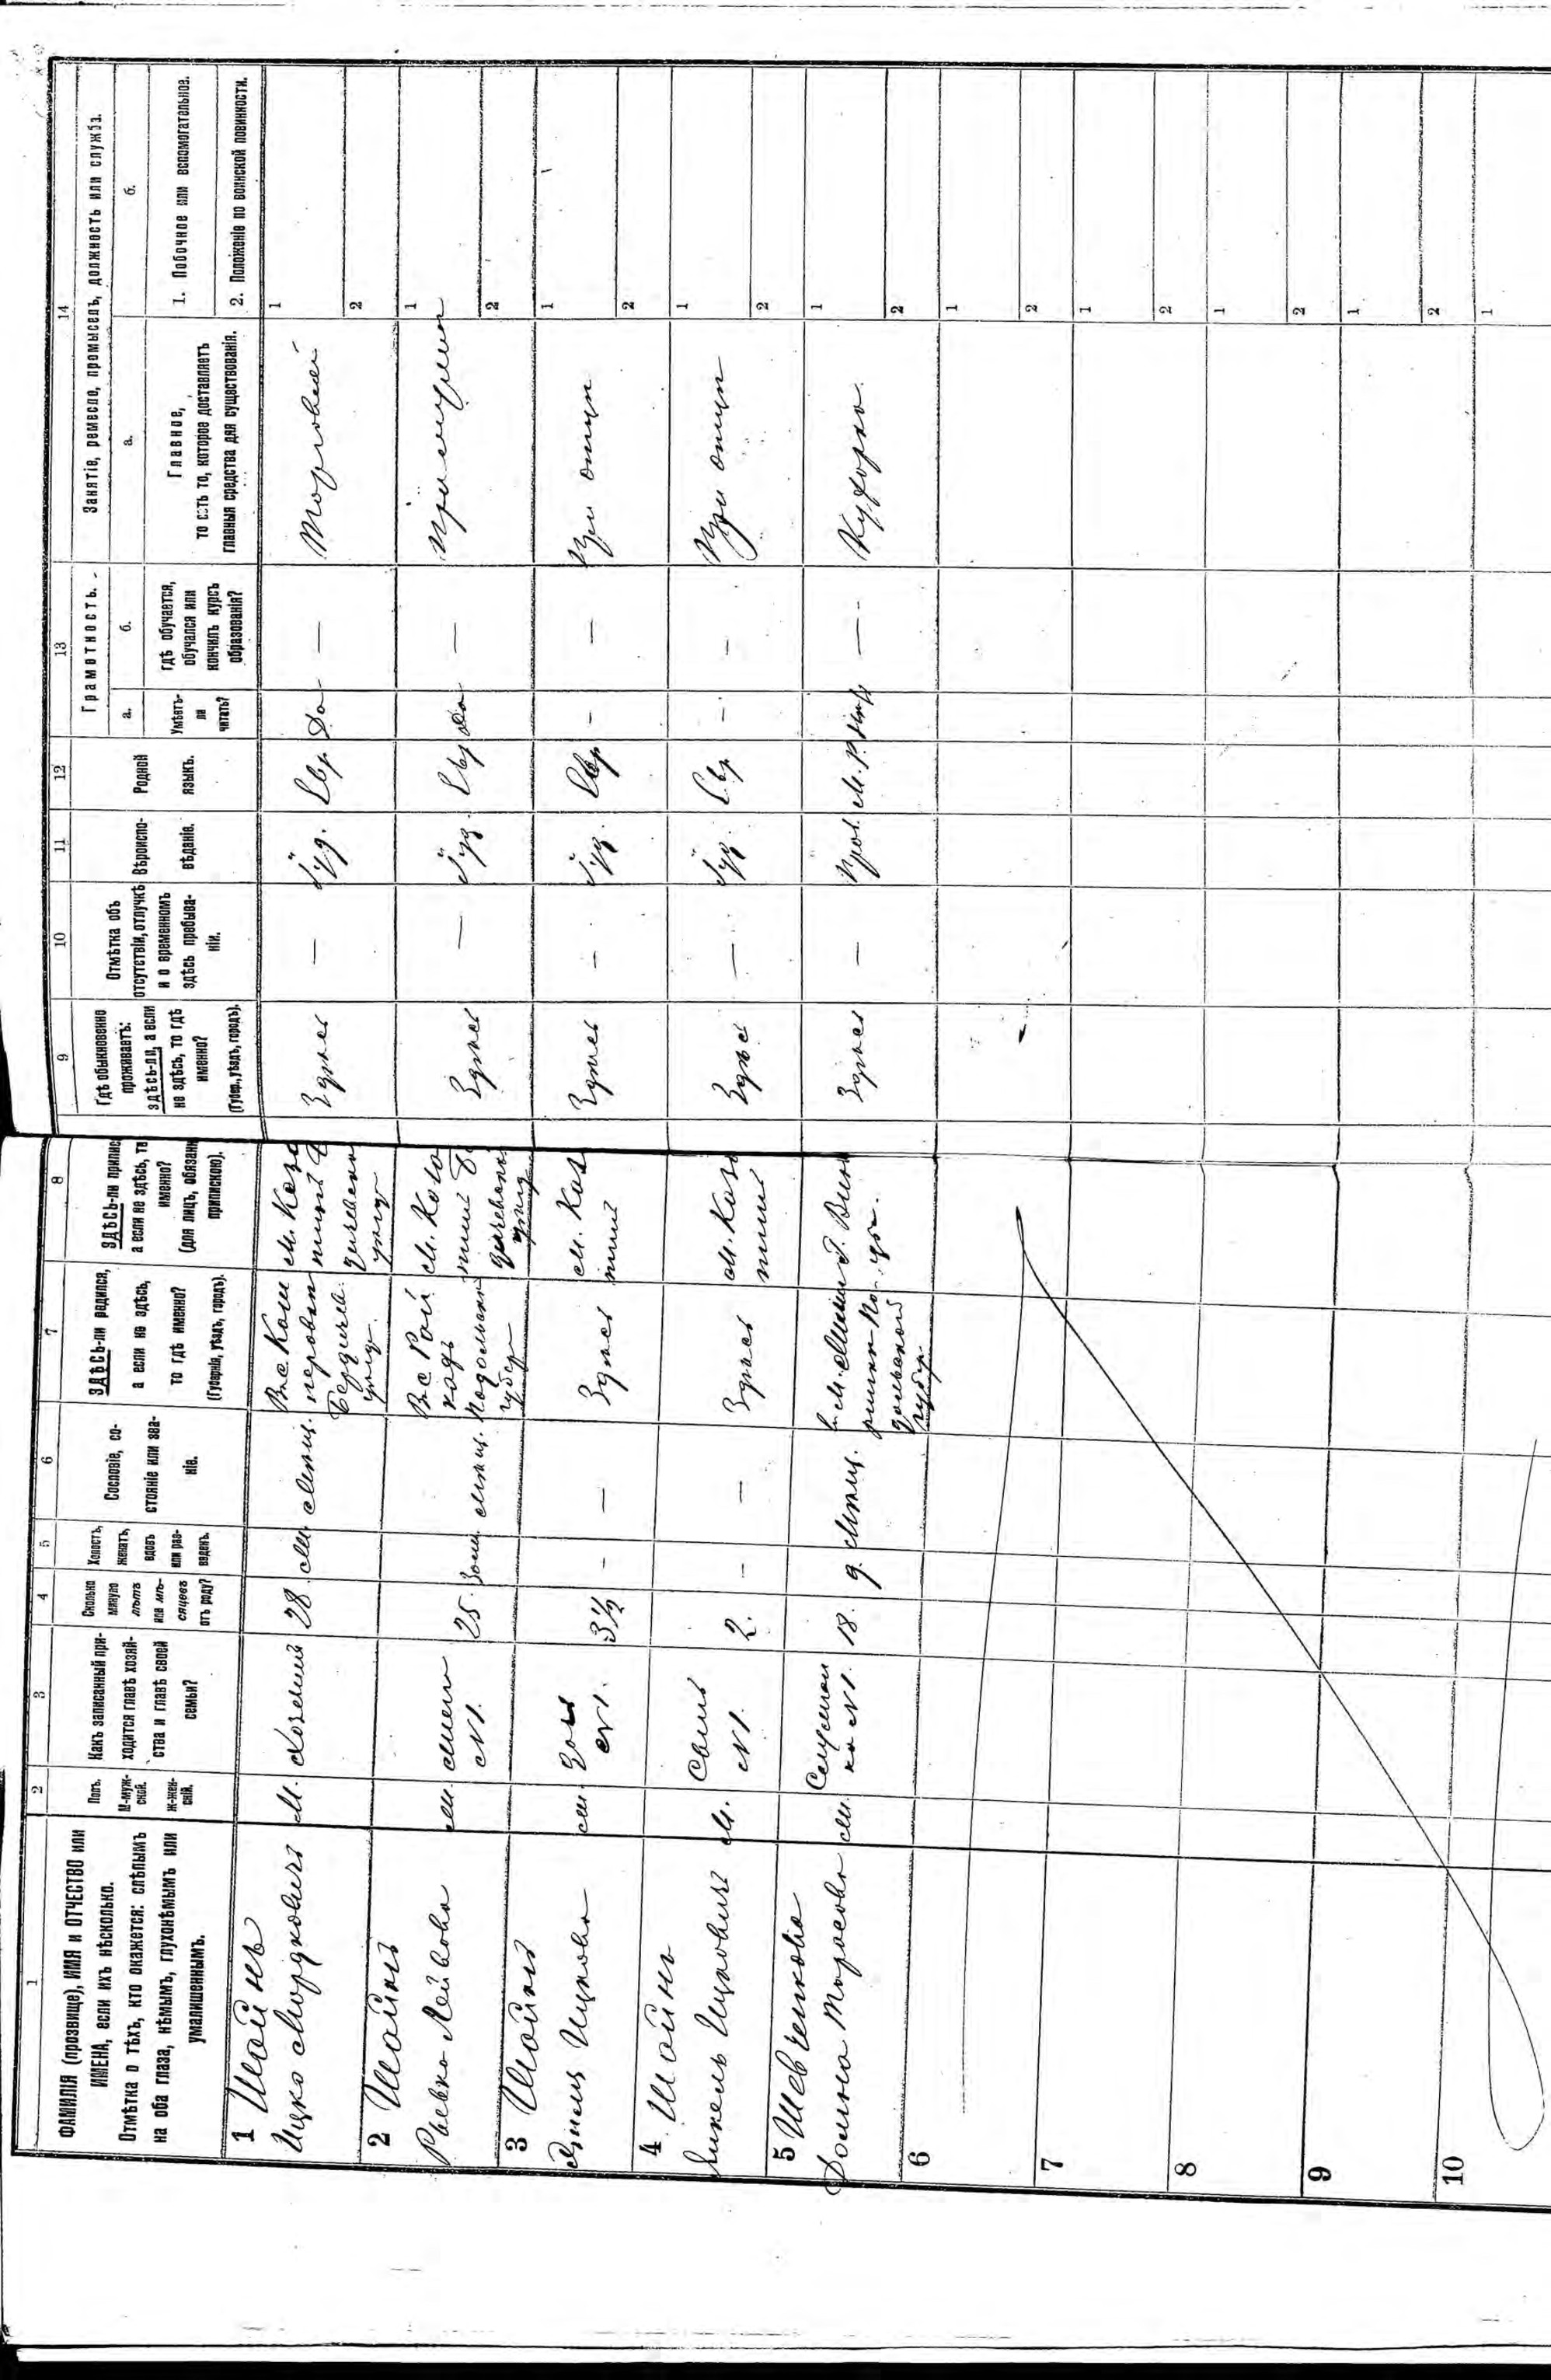 1
ФАМИЛІЯ (прозвище), ИМЯ и ОТЧЕСТВО или
ИМЕНА, если ихъ нѣсколько.
Отмѣтка о тѣхъ, кто окажется: слѣпымъ
на оба глаза, нѣмымъ, глухонѣмымъ или
умалишеннымъ.
2
Полъ.
М-муж-
ской.
Ж-жен-
скій.
3
Какъ записанный при-
ходится главѣ хозяй-
ства и главѣ своей
семьи?
4
Сколько
минуло
лѣтъ
или мѣ-
сяцевъ
отъ роду?
5
Холостъ,
женатъ,
вдовъ
или раз-
веденъ.
6
Сословіе, со-
стояніе или зва-
ніе.
7
ЗДѢСЬ-ли родился,
а если не здѣсь,
то гдѣ именно?
(Губернія, уѣздъ, городъ).
8
ЗДѢСЬ-ли приписа
а если не здѣсь, то
именно?
(для лицъ, обязанн
припискою).
9
Гдѣ обыкновенно
проживаетъ:
здѣсь-ли, а если
не здѣсь, то гдѣ
именно?
(Губер., уѣздъ, городъ).
10
Отмѣтка объ
отсутствіи, отлучкѣ
и о временномъ
здѣсь пребыва-
ніи.
11
Вѣроиспо-
вѣданіе.
12
Родной
языкъ.
13
Грамотность.
а.
Умѣетъ-
ли
читать?
б.
гдѣ обучается,
обучался или
кончилъ курсъ
образованія?
14
Занятіе, ремесло, промыселъ, должность или служба.
а.
Главное,
то есть то, которое доставляетъ
главныя средства для существованія.
б.
1. Побочное или вспомогательное.
2. Положеніе по воинской повинности.
1 Шайнъ
Ицко Мордковичъ
М.
Хозяинъ
28.
Мѣщ.
Вс. Ком
перовкѣ
Бердичев.
уѣзд.
м. Каза
уѣзд
Здѣсь
—
Іуд.
Евр.
Да
—
Торговый
1
2
2 Шайнъ
Рывка Лейбова
Жена
№1.
25.
Зам.
Мѣщ.
Вс Рай
кахъ
Подольской
губер
м. Каза
уѣзд
Здѣсь
—
Іуд.
Евр
Да
—
При мужѣ
1
2
3 Шайнъ
Ицкова
Дочь
№1.
3½
—
—
Здѣсь
м. Каза
Здѣсь
—
Іуд.
Евр
—
—
При отцѣ
1
2
4 Шайнъ
Ицковичъ
М.
Сынъ
№1.
2.
—
—
Здѣсь
м. Каза
Здѣсь
—
Іуд.
Евр
—
—
При отцѣ
1
2
5 Шевченкова
Домна Тарасова
Служан
ка №1.
18.
Д.
Мѣщ.
По
дольской
губер.
Здѣсь
—
Прав.
М. р.
—
Кухарка
1
2
6
1
2
7
1
2
8
1
2
9
1
2
10
1